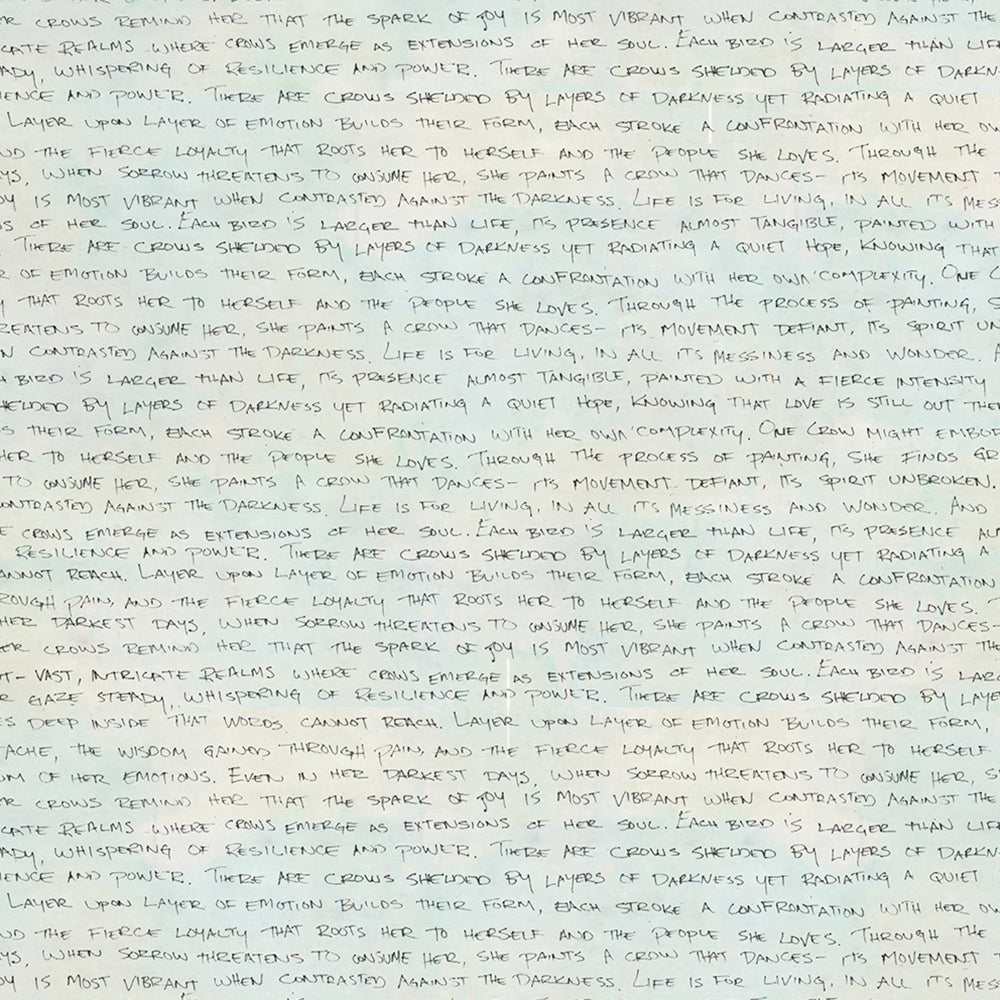 ER CROWS REMIND HER THAT THE SPARK OF JOY IS MOST VIBRANT WHEN CONTRASTED AGAINST THE
CATE REALMS WHERE CROWS EMERGE AS EXTENSIONS OF HER SOUL. EACH BIRD IS LARGER THAN LIF
ADY, WHISPERING OF RESILIENCE AND POWER. THERE ARE CROWS SHIELDED BY LAYERS OF DARKN
IENCE AND POWER. THERE ARE CROWS SHIELDED BY LAYERS OF DARKNESS YET RADIATING A QUIET
LAYER UPON LAYER OF EMOTION BUILDS THEIR FORM, EACH STROKE A CONFRONTATION WITH HER OW
ND THE FIERCE LOYALTY THAT ROOTS HER TO HERSELF AND THE PEOPLE SHE LOVES. THROUGH THE
YS, WHEN SORROW THREATENS TO CONSUME HER, SHE PAINTS A CROW THAT DANCES- ITS MOVEMENT
OY IS MOST VIBRANT WHEN CONTRASTED AGAINST THE DARKNESS. LIFE IS FOR LIVING, IN ALL ITS MES
S OF HER SOUL. EACH BIRD IS LARGER THAN LIFE, ITS PRESENCE ALMOST TANGIBLE, PAINTED WITH
THERE ARE CROWS SHIELDED BY LAYERS OF DARKNESS YET RADIATING A QUIET HOPE, KNOWING THAT
R OF EMOTION BUILDS THEIR FORM, EACH STROKE A CONFRONTATION WITH HER OWN COMPLEXITY. ONE C
Y THAT ROOTS HER TO HERSELF AND THE PEOPLE SHE LOVES. THROUGH THE PROCESS OF PAINTING, S
REATENS TO CONSUME HER, SHE PAINTS A CROW THAT DANCES- ITS MOVEMENT DEFIANT, ITS SPIRIT UN
N CONTRASTED AGAINST THE DARKNESS. LIFE IS FOR LIVING, IN ALL ITS MESSINESS AND WONDER. A
H BIRD IS LARGER THAN LIFE, ITS PRESENCE ALMOST TANGIBLE, PAINTED WITH A FIERCE INTENSITY
HIELDED BY LAYERS OF DARKNESS YET RADIATING A QUIET HOPE, KNOWING THAT LOVE IS STILL OUT THE
S THEIR FORM, EACH STROKE A CONFRONTATION WITH HER OWN COMPLEXITY. ONE CROW MIGHT EMBOD
HER TO HERSELF AND THE PEOPLE SHE LOVES. THROUGH THE PROCESS OF PAINTING, SHE FINDS GR
TO CONSUME HER, SHE PAINTS A CROW THAT DANCES- ITS MOVEMENT DEFIANT, ITS SPIRIT UNBROKEN.
ONTRASTED AGAINST THE DARKNESS. LIFE IS FOR LIVING, IN ALL ITS MESSINESS AND WONDER. AND
E CROWS EMERGE AS EXTENSIONS OF HER SOUL. EACH BIRD IS LARGER THAN LIFE, ITS PRESENCE AL
RESILIENCE AND POWER. THERE ARE CROWS SHIELDED BY LAYERS OF DARKNESS YET RADIATING A
ANNOT REACH. LAYER UPON LAYER OF EMOTION BUILDS THEIR FORM, EACH STROKE A CONFRONTATION
ROUGH PAIN, AND THE FIERCE LOYALTY THAT ROOTS HER TO HERSELF AND THE PEOPLE SHE LOVES. T
HER DARKEST DAYS, WHEN SORROW THREATENS TO CONSUME HER, SHE PAINTS A CROW THAT DANCES-
ER CROWS REMIND HER THAT THE SPARK OF JOY IS MOST VIBRANT WHEN CONTRASTED AGAINST THE
RT- VAST, INTRICATE REALMS WHERE CROWS EMERGE AS EXTENSIONS OF HER SOUL. EACH BIRD IS LARG
R GAZE STEADY, WHISPERING OF RESILIENCE AND POWER. THERE ARE CROWS SHIELDED BY LAYE
S DEEP INSIDE THAT WORDS CANNOT REACH. LAYER UPON LAYER OF EMOTION BUILDS THEIR FORM,
ACHE, THE WISDOM GAINED THROUGH PAIN, AND THE FIERCE LOYALTY THAT ROOTS HER TO HERSELF
UM OF HER EMOTIONS. EVEN IN HER DARKEST DAYS, WHEN SORROW THREATENS TO CONSUME HER, S
ER CROWS REMIND HER THAT THE SPARK OF JOY IS MOST VIBRANT WHEN CONTRASTED AGAINST THE
CATE REALMS WHERE CROWS EMERGE AS EXTENSIONS OF HER SOUL. EACH BIRD IS LARGER THAN LIF
ADY, WHISPERING OF RESILIENCE AND POWER. THERE ARE CROWS SHIELDED BY LAYERS OF DARKN
IENCE AND POWER. THERE ARE CROWS SHIELDED BY LAYERS OF DARKNESS YET RADIATING A QUIET
LAYER UPON LAYER OF EMOTION BUILDS THEIR FORM, EACH STROKE A CONFRONTATION WITH HER OW
ND THE FIERCE LOYALTY THAT ROOTS HER TO HERSELF AND THE PEOPLE SHE LOVES. THROUGH THE
YS, WHEN SORROW THREATENS TO CONSUME HER, SHE PAINTS A CROW THAT DANCES- ITS MOVEMENT
OY IS MOST VIBRANT WHEN CONTRASTED AGAINST THE DARKNESS. LIFE IS FOR LIVING, IN ALL ITS MES